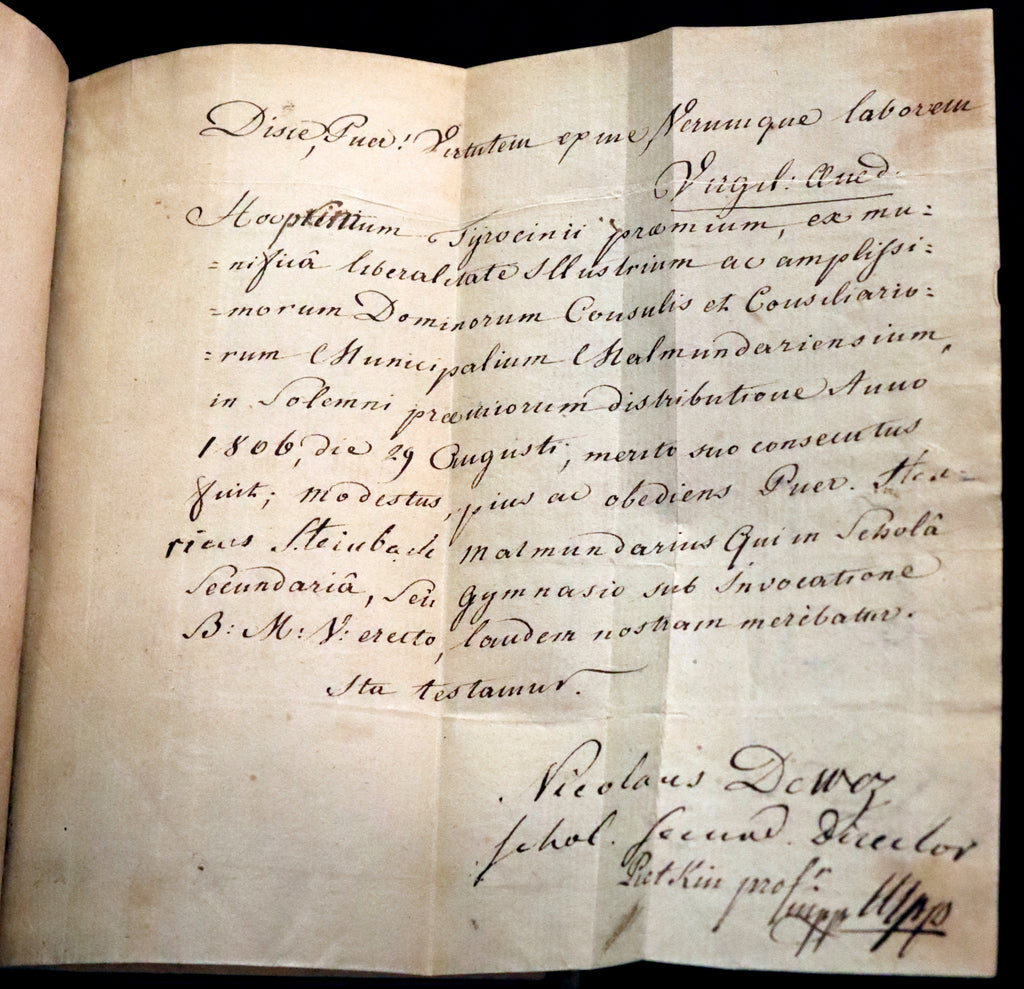 Disce, Puer! Virtutem ex me, Verumque laborem
Virgil: Æned.
Hoc primum Tyrocinii præmium, ex mu=
=nificâ liberalitate Illustrium ac amplissi=
=morum Dominorum Consulis et Consiliario=
=rum Municipalium Malmundariensium,
in Solemni præmiorum distributione Anno
1806, die 29 Augusti, merito suo consecutus
fuit; modestus, pius ac obediens Puer. Hen=
ricus Steinbach Malmundarius Qui in Scholâ
Secundariâ, Seu Gymnasio sub Invocatione
B: M: V: erecto, laudem nostram meribatur.
Ita testamur.
Nicolaus Dewez
schol. secund. Director
Piet Kin prof.r